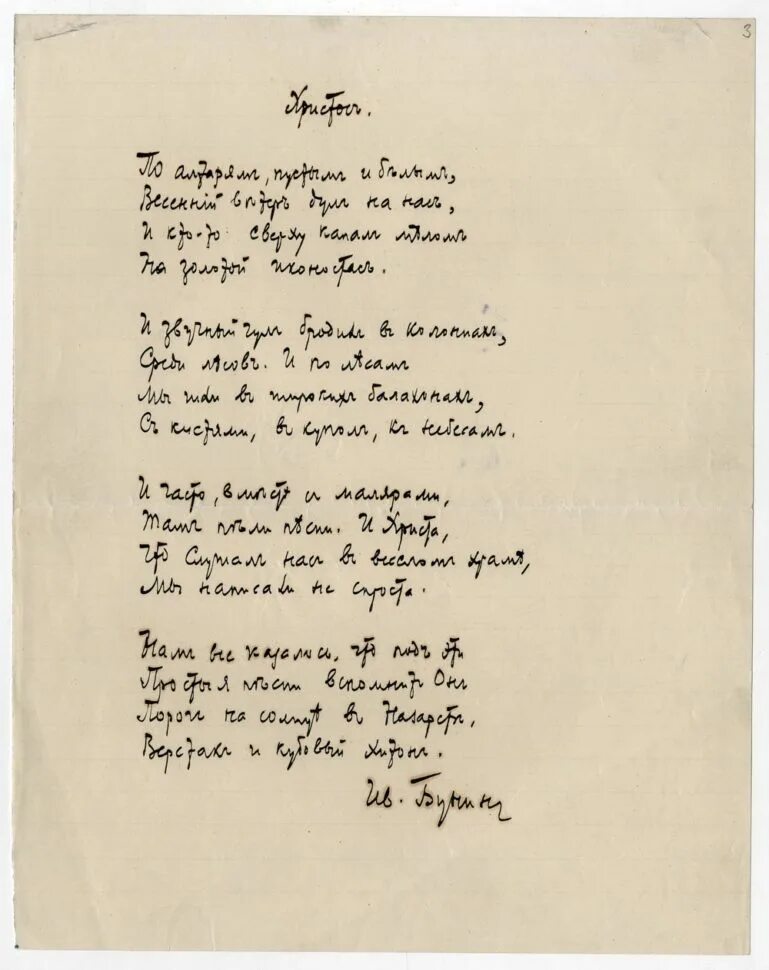 3
Христосъ.
По алтарямъ, пустымъ и бѣлымъ,
Весенній вѣтеръ дулъ на насъ,
И кто-то сверху капалъ мѣломъ
На золотой иконостасъ.
И звучный гулъ бродилъ въ колоннахъ,
Среди лѣсовъ. И по лѣсамъ
Мы шли въ широкихъ балахонахъ,
Съ кистями, въ куполъ, къ небесамъ.
И часто, вмѣстѣ съ малярами,
Тамъ пѣли пѣсни. И Христа,
Что слушалъ насъ въ веселомъ храмѣ,
Мы написали не спроста.
Намъ все казалось, что подъ эти
Простыя пѣсни вспомнитъ Онъ
Порогъ на солнцѣ въ Назаретѣ,
Верстакъ и кубовый хитонъ.
Ив. Бунинъ